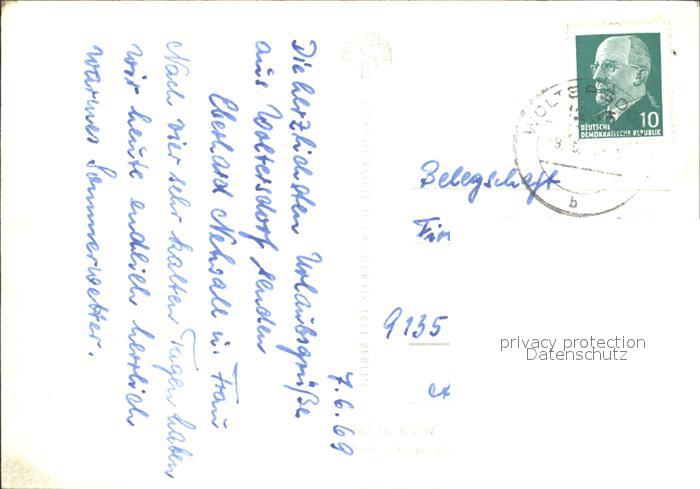 7.6.69
Die herzlichsten Urlaubsgrüße
aus Woltersdorf senden
Eberhard u. Frau
Nach vier sehr kalten Tagen haben
wir heute endlich herrlich
warmes Sommerwetter.
DEUTSCHE
DEMOKRATISCHE REPUBLIK
10
WOLTERSDO
b
Belegschaft
9135
privacy protection
Datenschutz